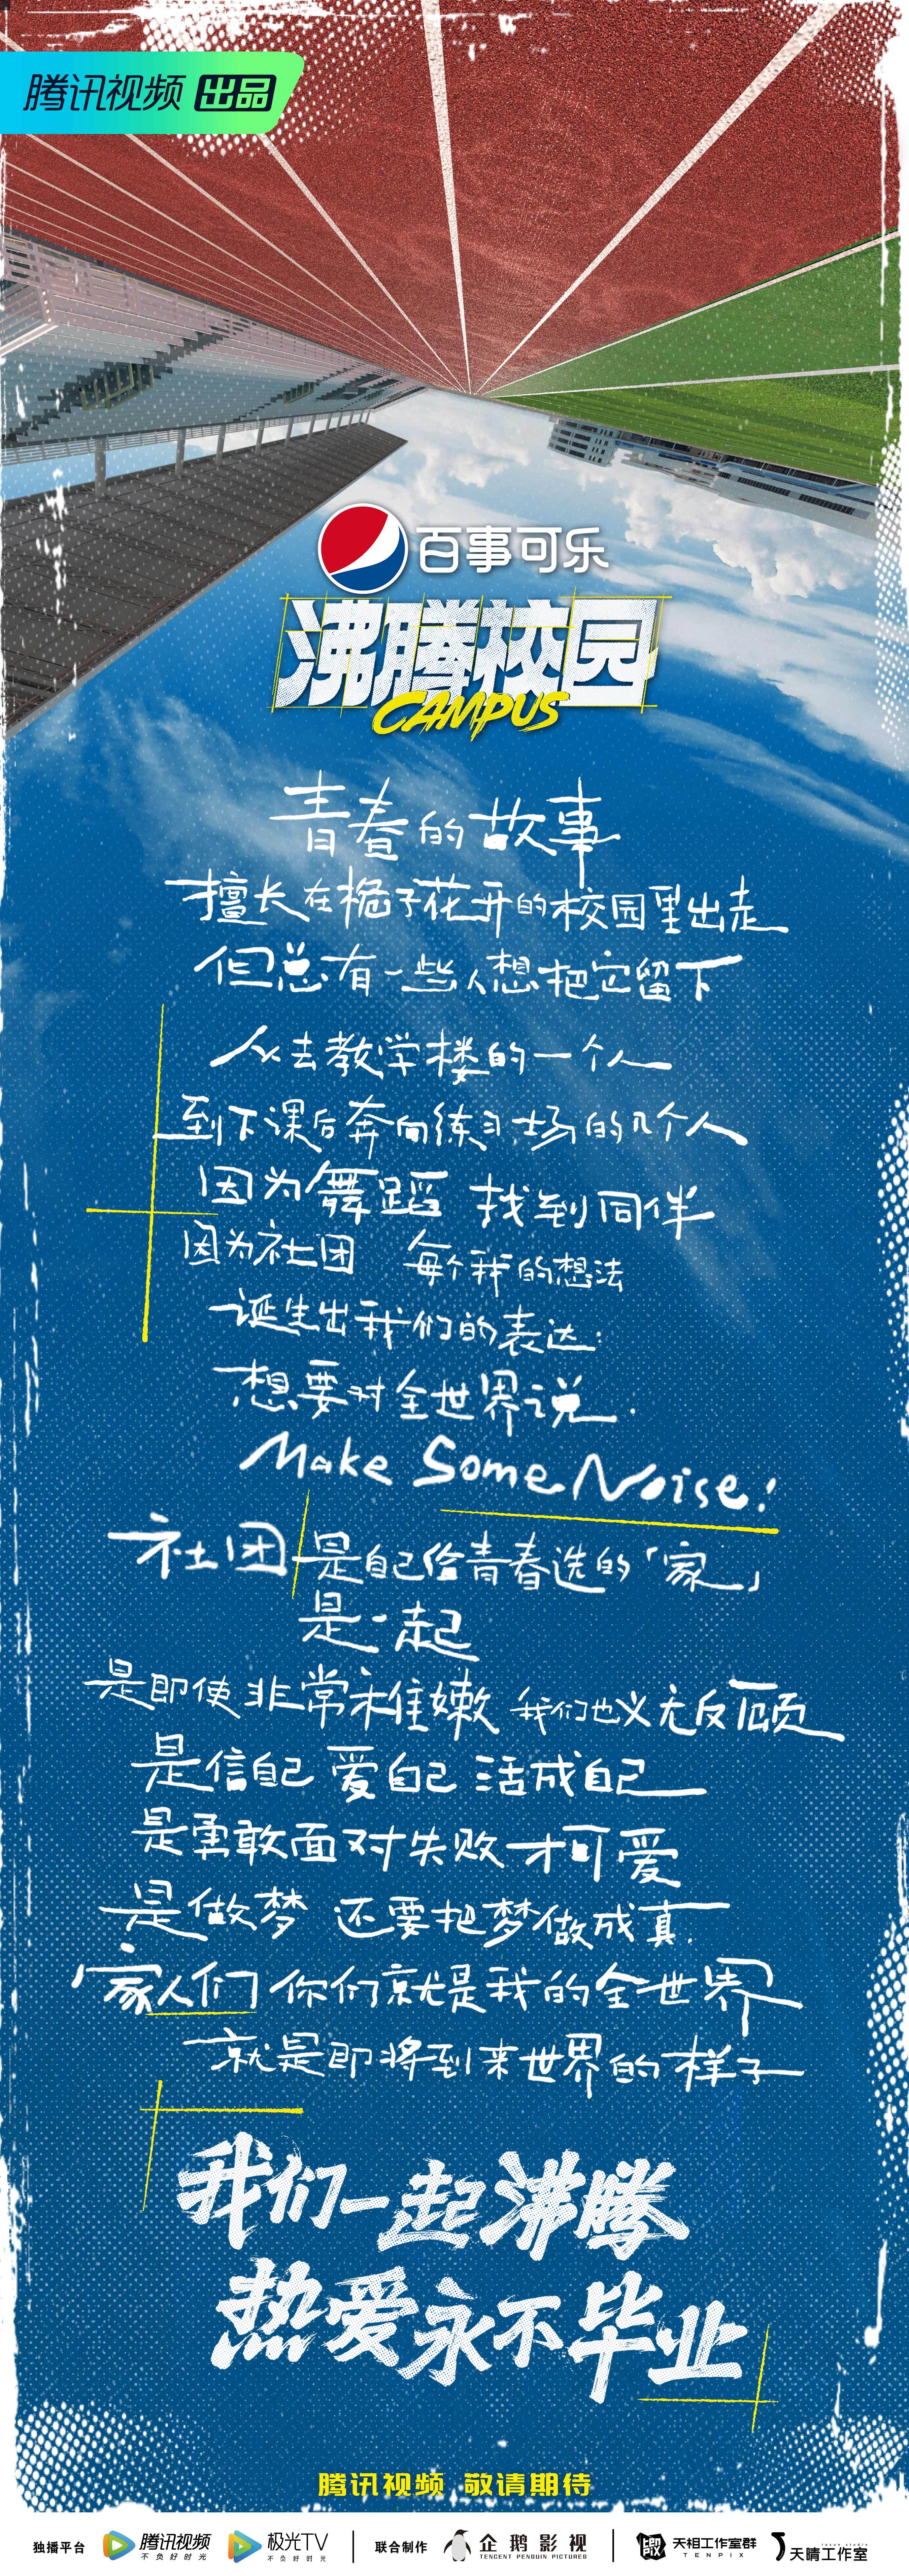 腾讯视频 出品
百事可乐
沸腾校园
CAMPUS
青春的故事
擅长在栀子花开的校园里出走
但总有一些人想把它留下
从去教学楼的一个人
到下课后奔向练习场的几个人
因为舞蹈 找到同伴
因为社团 每个我的想法
诞生出我们的表达：
想要对全世界说.
Make Some Noise!
社团 是自己给青春选的「家」
是一起
是即使非常稚嫩 我们也义无反顾
是信自己 爱自己 活成自己
是勇敢面对失败才可爱
是做梦 还要把梦做成真.
家人们 你们就是我的全世界
就是即将到来世界的样子
我们一起沸腾
热爱永不毕业
腾讯视频 敬请期待
独播平台 腾讯视频 不负好时光 极光TV 不负好时光 联合制作 企鹅影视 TENCENT PENGUIN PICTURES 天相工作室群 TENPIX 天晴工作室